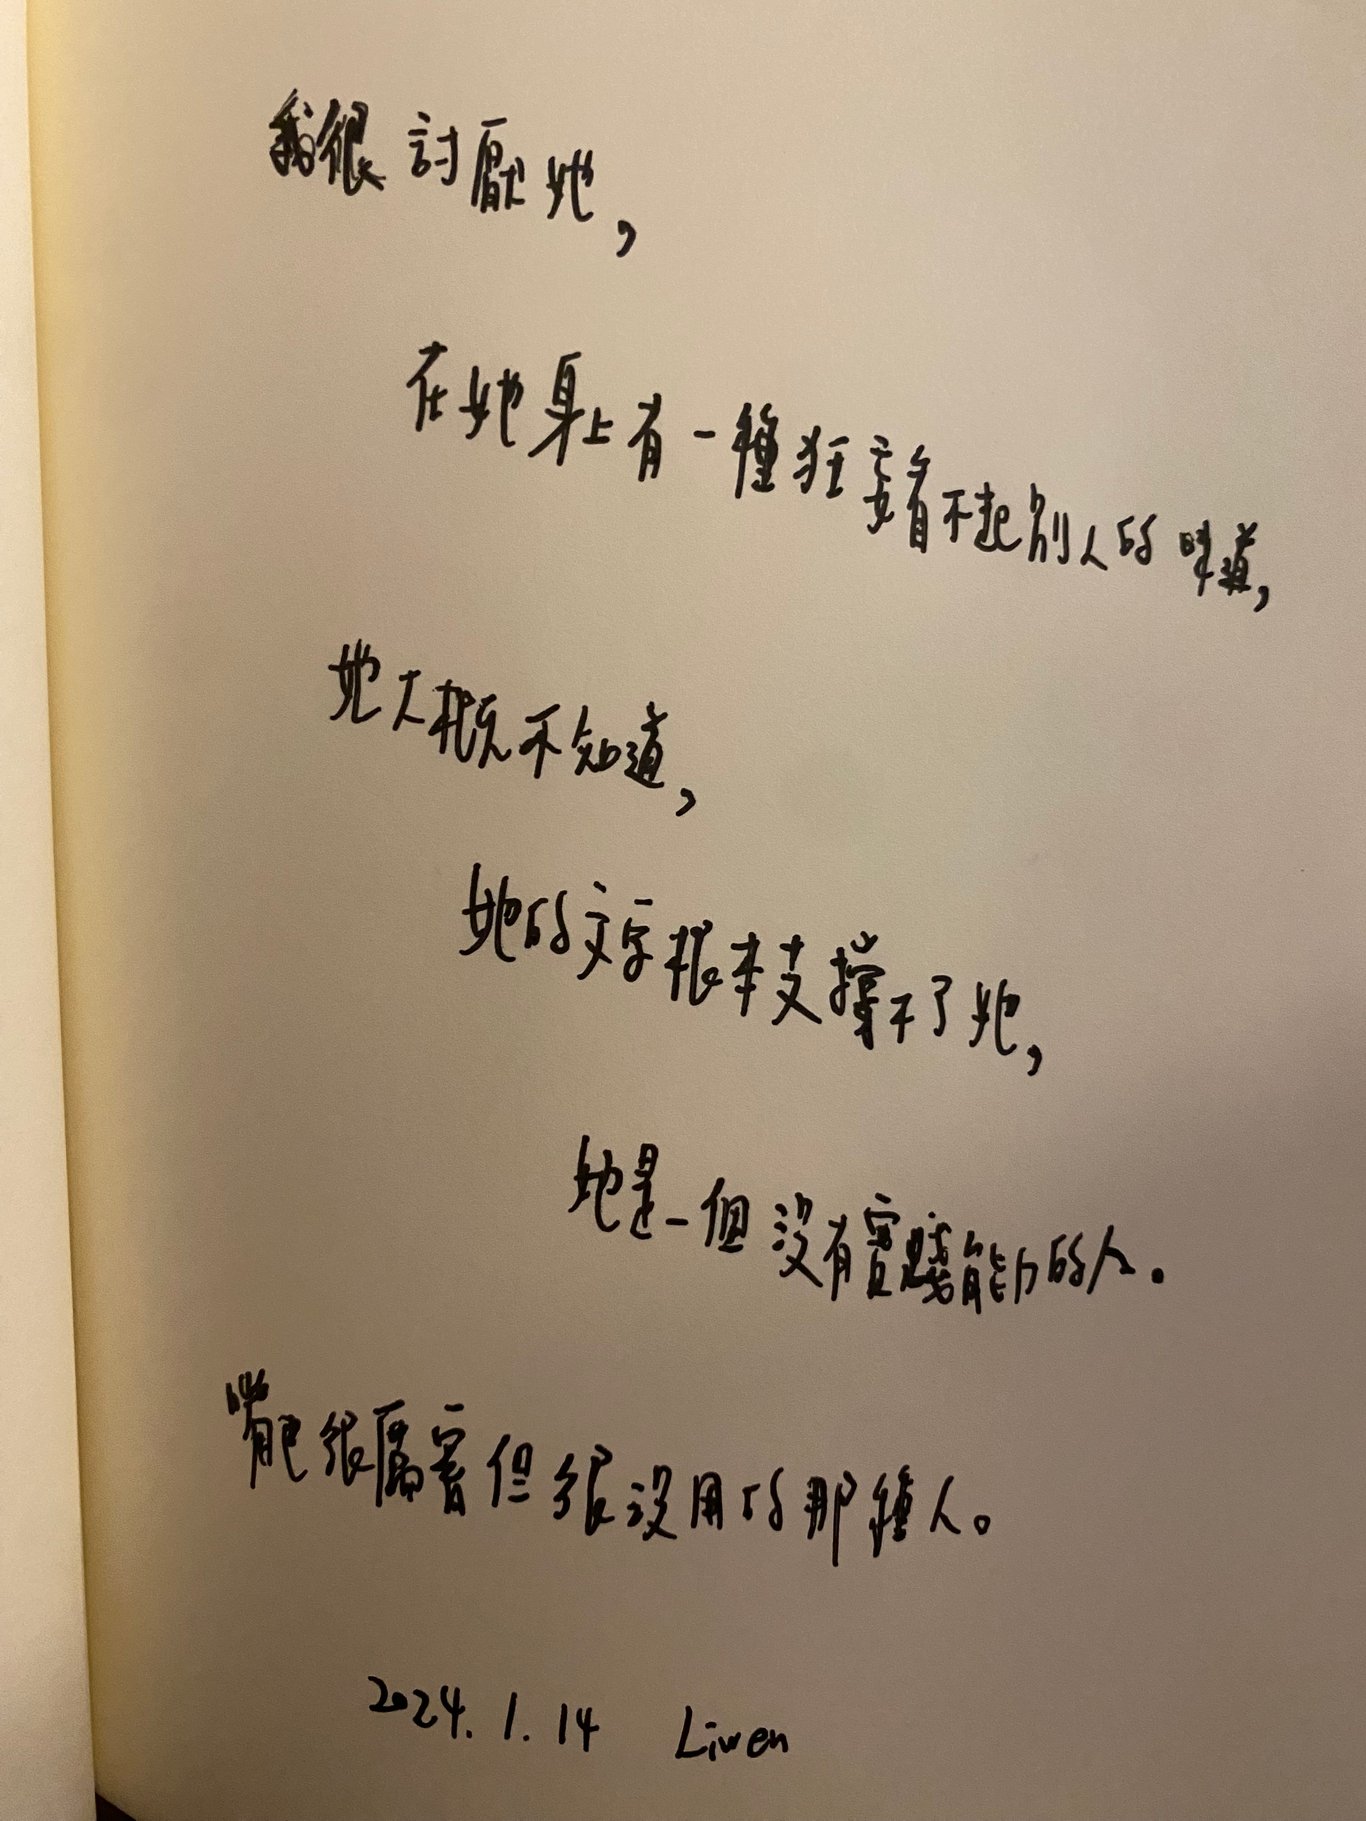 我很討厭她,
在她身上有一種狂妄看不起別人的味道,
她大概不知道,
她的文字根本支撐不了她,
她是一個沒有實踐能力的人。
嘴巴很厲害但很沒用的那種人。
2024.1.14 Liwen